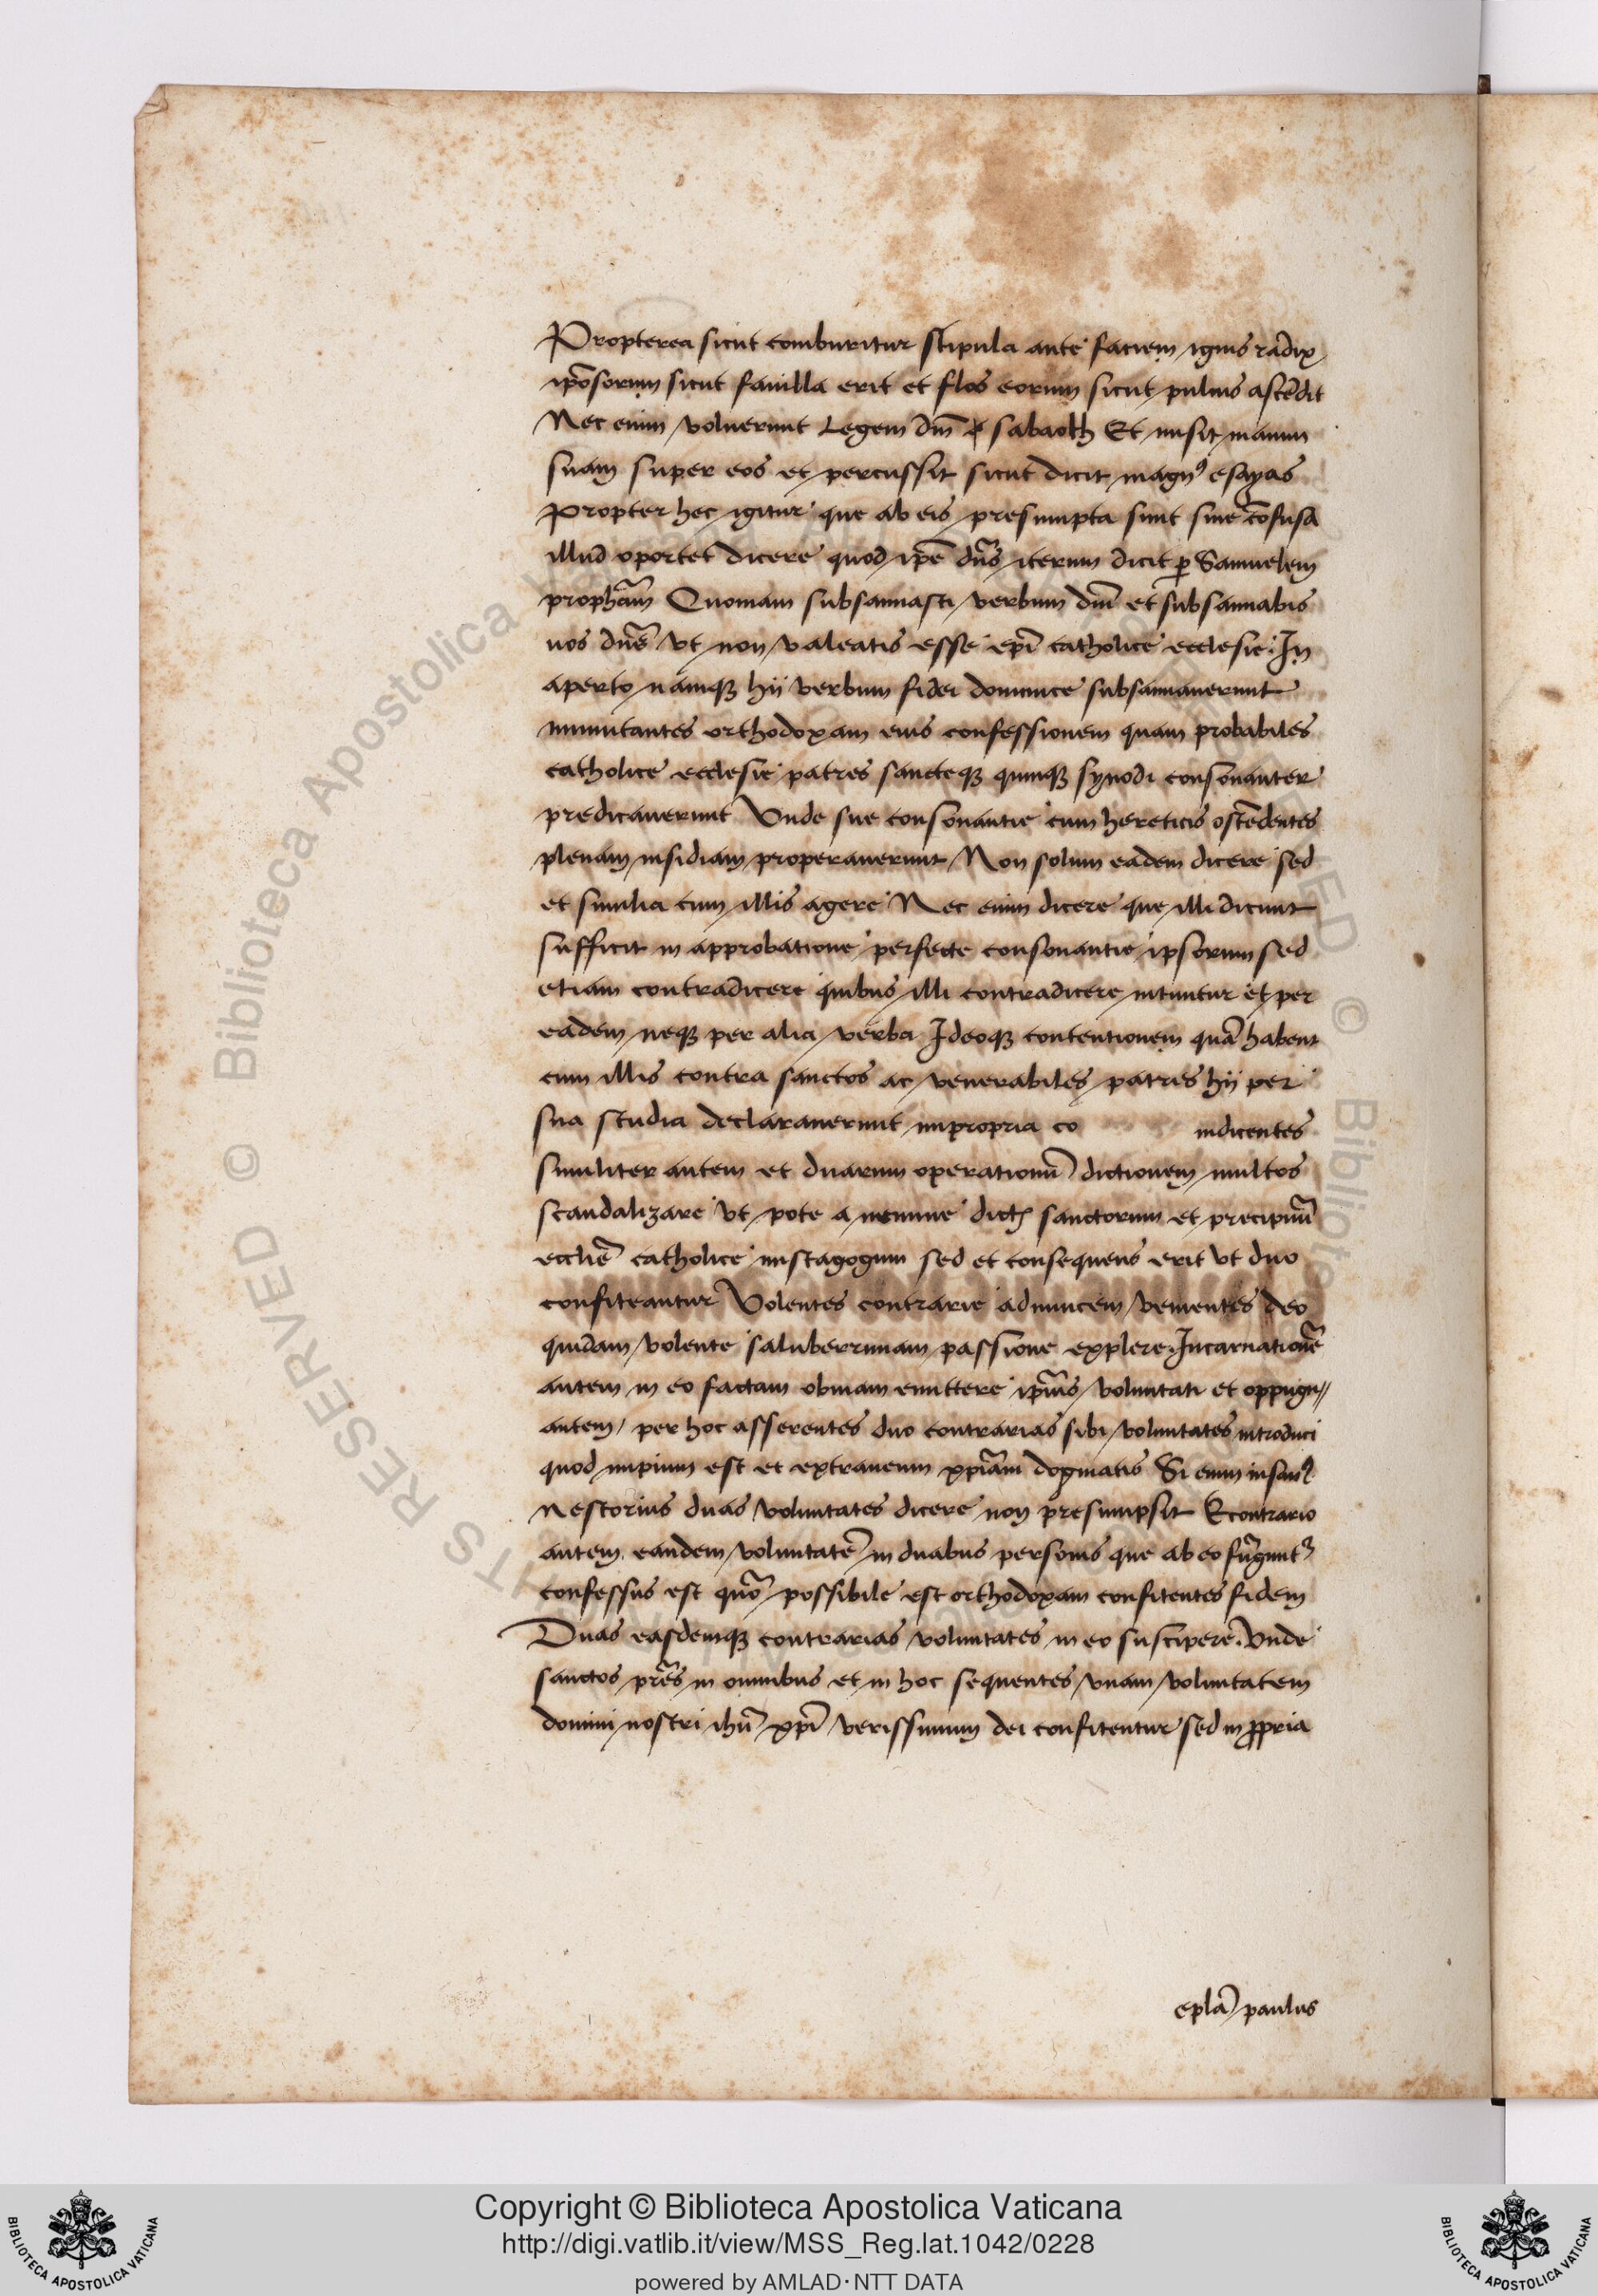 Propterea sicut comburitur stipula ante faciem ignis radix
ip̄osorum sicut fauilla erit et flos eorum sicut puluis ascēdit
Nec enim voluerunt Legem dm̄ sabaoth Et misit manum
suam super eos et percussit sicut dicit magnꝰ esayas
Propter hec igitur que ab eis presumpta sunt siue cōfusa
illud oportet dicere quod ip̄e dn̄s iterum dicit ꝑ Samuelem
proph̄am Quoniam subsannasti verbum dm̄ et subsannabis
uos dn̄s vt non valeatis esse ep̄i catholice ecclesie. In
aperto namqꝫ hij verbum fidei dominice subsannauerunt
immutantes orthodoxam eius confessionem quam probabiles
catholice ecclesie patres sancteqꝫ quinqꝫ synodi consonanter
predicauerunt Vnde sue consonantie cum hereticis ostēdentes
plenam insidiam properauerunt Non solum eadem dicere sed
et similia cum illis agere Nec enim dicere que illi dicunt
sufficit in approbatione perfecte consonantie ipsorum sed
etiam contradicere quibus illi contradicere nituntur et per
eadem neqꝫ per alia verba Ideoqꝫ contentionem quā habent
cum illis contra sanctos ac venerabiles patres hij per
sua studia declarauerunt impropria co indicentes
similiter autem et duarum operationū dictionem multos
scandalizare vt pote a nemine sanctorum et precipuū
eccliē catholice mistagogum sed et consequens erit vt duo
confiteantur Volentes contrarie adinuicem venientes deo
quidam volente saluberrimam passione explere. Incarnationē
autem in eo factam obuiam emittere voluntati et oppugn//
antem per hoc asserentes duo contrarias sibi voluntates introduci
quod impium est et extraneum xp̄iam dogmatis Si enim insanꝰ
Nestorius duas voluntates dicere non presumpsit Econtrario
autem eandem voluntatē in duabus personis que ab eo
confessus est quō possibile est orthodoxam confitentes fidem
Duas easdemqꝫ contrarias voluntates in eo suscipere. Vnde
sanctos pr̄es in omnibus et in hoc sequentes vnam voluntatem
domini nostri ihū xp̄i verissimum dei confitentur sed in ꝓpria
epl̄a paulus
© Biblioteca Apostolica Vaticana
Copyright © Biblioteca Apostolica Vaticana
http://digi.vatlib.it/view/MSS_Reg.lat.1042/0228
powered by AMLAD·NTT DATA
BIBLIOTECA APOSTOLICA VATICANA
BIBLIOTECA APOSTOLICA VATICANA